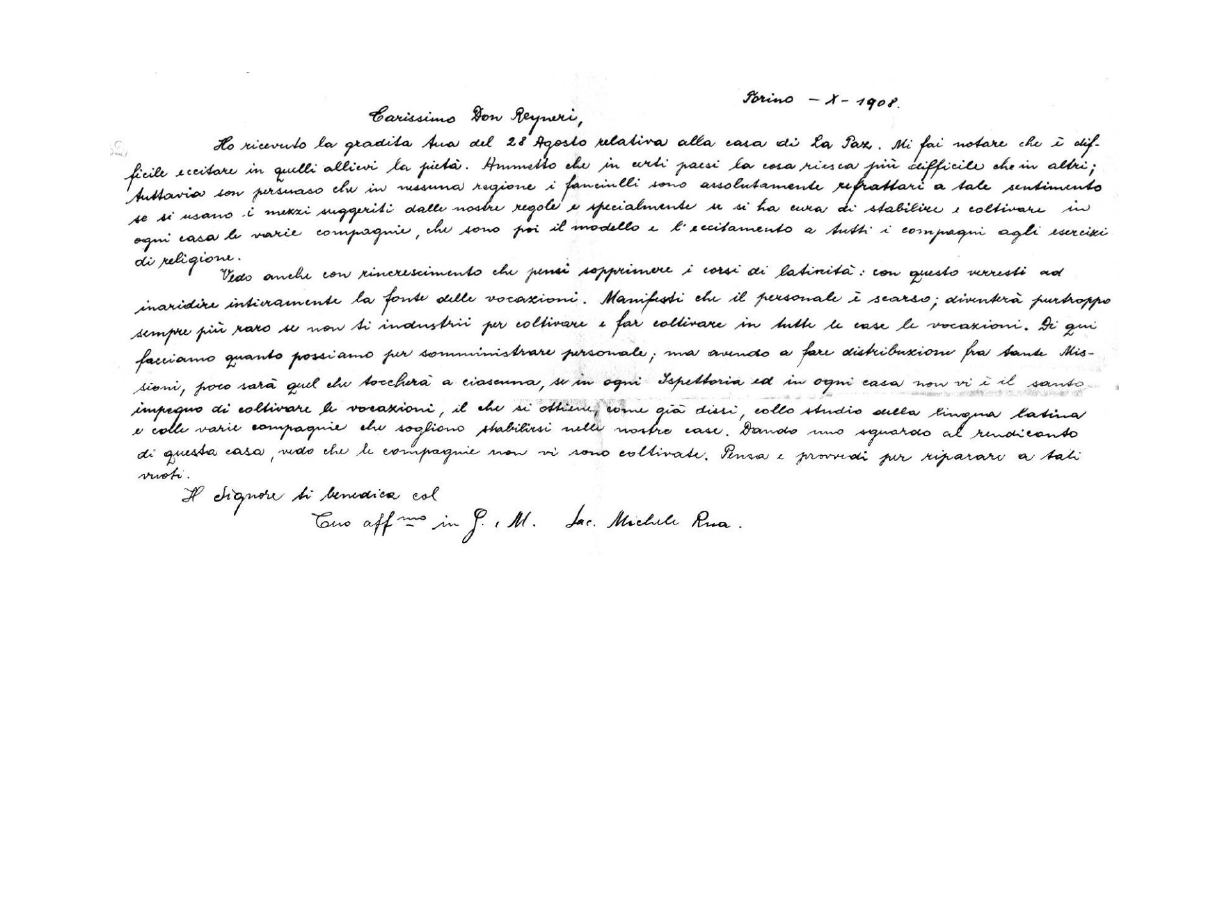 Torino - X - 1908.
Carissimo Don Reyneri,
Ho ricevuto la gradita tua del 28 Agosto relativa alla casa di La Paz. Mi fai notare che è dif-
ficile eccitare in quelli allievi la pietà. Ammetto che in certi paesi la cosa riesca più difficile che in altri;
tuttavia son persuaso che in nessuna regione i fanciulli sono assolutamente refrattari a tale sentimento
se si usano i mezzi suggeriti dalle nostre regole e specialmente se si ha cura di stabilire e coltivare in
ogni casa le varie compagnie, che sono poi il modello e l'eccitamento a tutti i compagni agli esercizi
di religione.
Vedo anche con rincrescimento che pensi sopprimere i corsi di latinità: con questo verresti ad
inaridire intieramente la fonte delle vocazioni. Manifesti che il personale è scarso; diventerà purtroppo
sempre più raro se non ti industrii per coltivare e far coltivare in tutte le case le vocazioni. Di qui
facciamo quanto possiamo per somministrare personale; ma avendo a fare distribuzione fra tante Mis-
sioni, poco sarà quel che toccherà a ciascuna, se in ogni Ispettoria ed in ogni casa non vi è il santo
impegno di coltivare le vocazioni, il che si ottiene, come già dissi, collo studio della lingua latina
e colle varie compagnie che sogliono stabilirsi nelle nostre case. Dando uno sguardo al rendiconto
di questa casa, vedo che le compagnie non vi sono coltivate. Pensa e provvedi per riparare a tali
vuoti.
Il Signore ti benedica col
Tuo aff mo in G. e M. Sac. Michele Rua.